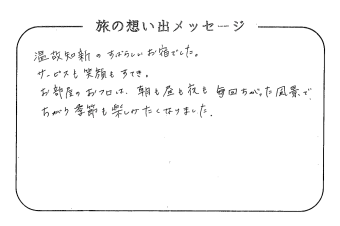 旅の想い出メッセージ
温故知新のすばらしいお宿でした。
サービスも笑顔もすてき。
お部屋のおフロは、朝も昼も夜も毎回ちがった風景で
ちがう季節も楽しみたくなりました。